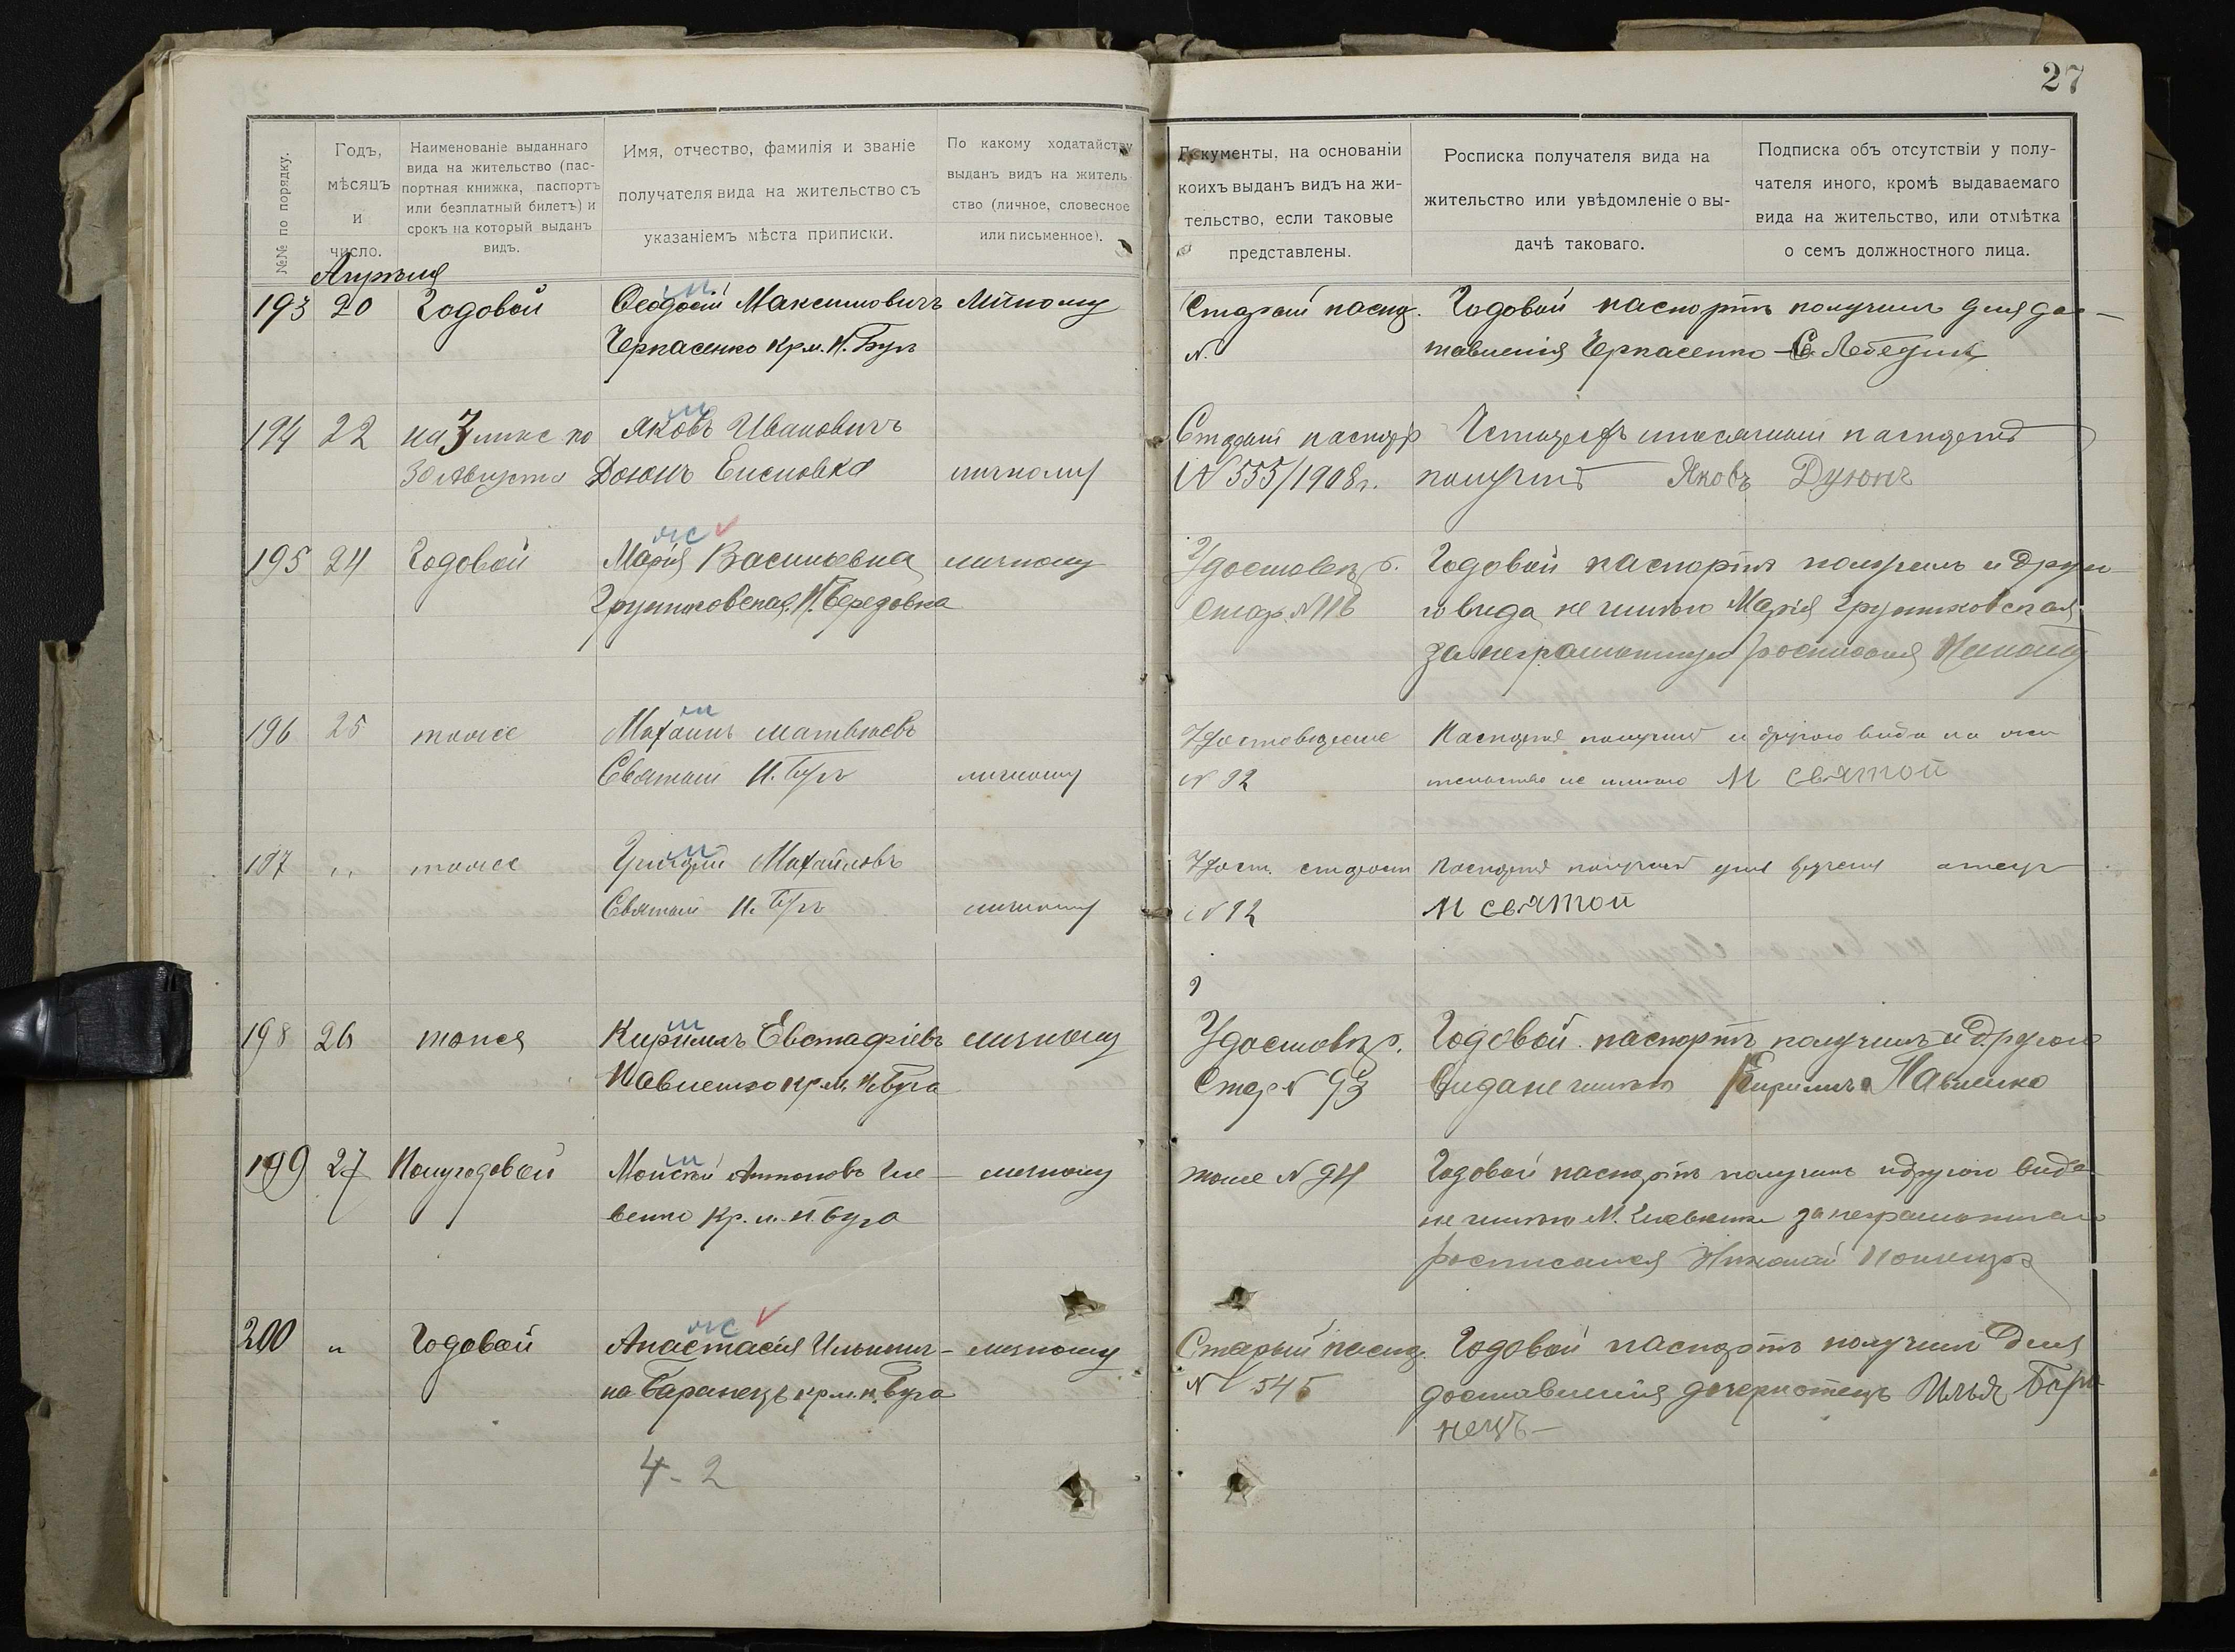 27
№№ по порядку.
Годъ,
мѣсяцъ
и
число.
Наименованіе выданнаго
вида на жительство (пас-
портная книжка, паспортъ
или безплатный билетъ) и
срокъ на который выданъ
видъ.
Имя, отчество, фамилія и званіе
получателя вида на жительство съ
указаніемъ мѣста приписки.
По какому ходатайству
выданъ видъ на житель-
ство (личное, словесное
или письменное).
Документы, на основаніи
коихъ выданъ видъ на жи-
тельство, если таковые
представлены.
Росписка получателя вида на
жительство или увѣдомленіе о вы-
дачѣ таковаго.
Подписка объ отсутствіи у полу-
чателя иного, кромѣ выдаваемаго
вида на жительство, или отмѣтка
о семъ должностного лица.
Апрѣля
м
193 20 Годовой Ѳеодосій Максимовичъ личному Старый паспор. Годовой паспортъ получилъ для дос-
Черкасенко кр. м. Н. Бугъ № тавленія Черкасенко
м
194 22 на 3 Яковъ Ивановичъ Старый паспор паспортъ
30 Августа личному № 555/1908 г. получилъ Яковъ Дуюнъ
жс
195 24 Годовой Марія Васильевна личному Удостовѣр. Годовой паспортъ получилъ и друго-
Стар. № 116 го вида не имѣю Марія
за неграмотную росписался
м
196 25 тоже Михаилъ Матвѣевъ Удостовѣреніе Паспортъ получилъ и другого вида на жи
Святый Н. Бугъ личному № 92 тельство не имѣю М Святой
м
197 " тоже Григорій Михайловъ Удост. старост Паспортъ получилъ для врученія отецъ
Святый Н. Бугъ личному № 92 М Святой
м
198 26 тоже Кириллъ Евстафіевъ личному Удостовѣр. Годовой паспортъ получилъ и другого
Павленко кр. м. Н Буга Стар № 93 вида не имѣю Кириллъ Павленко
м
199 27 Полугодовой Моисей Антоновъ личному тоже № 94 Годовой паспортъ получилъ и другого вида
кр. м. Н. Буга не имѣю М. за неграмотнаго
росписался Николай
жс
200 " Годовой Анастасія Ильинич- личному Старый паспор. Годовой паспортъ получилъ для
на Баранецъ кр. м. Н. Буга № 545 доставленія дочери отецъ Илья Бара
нецъ
4 - 2